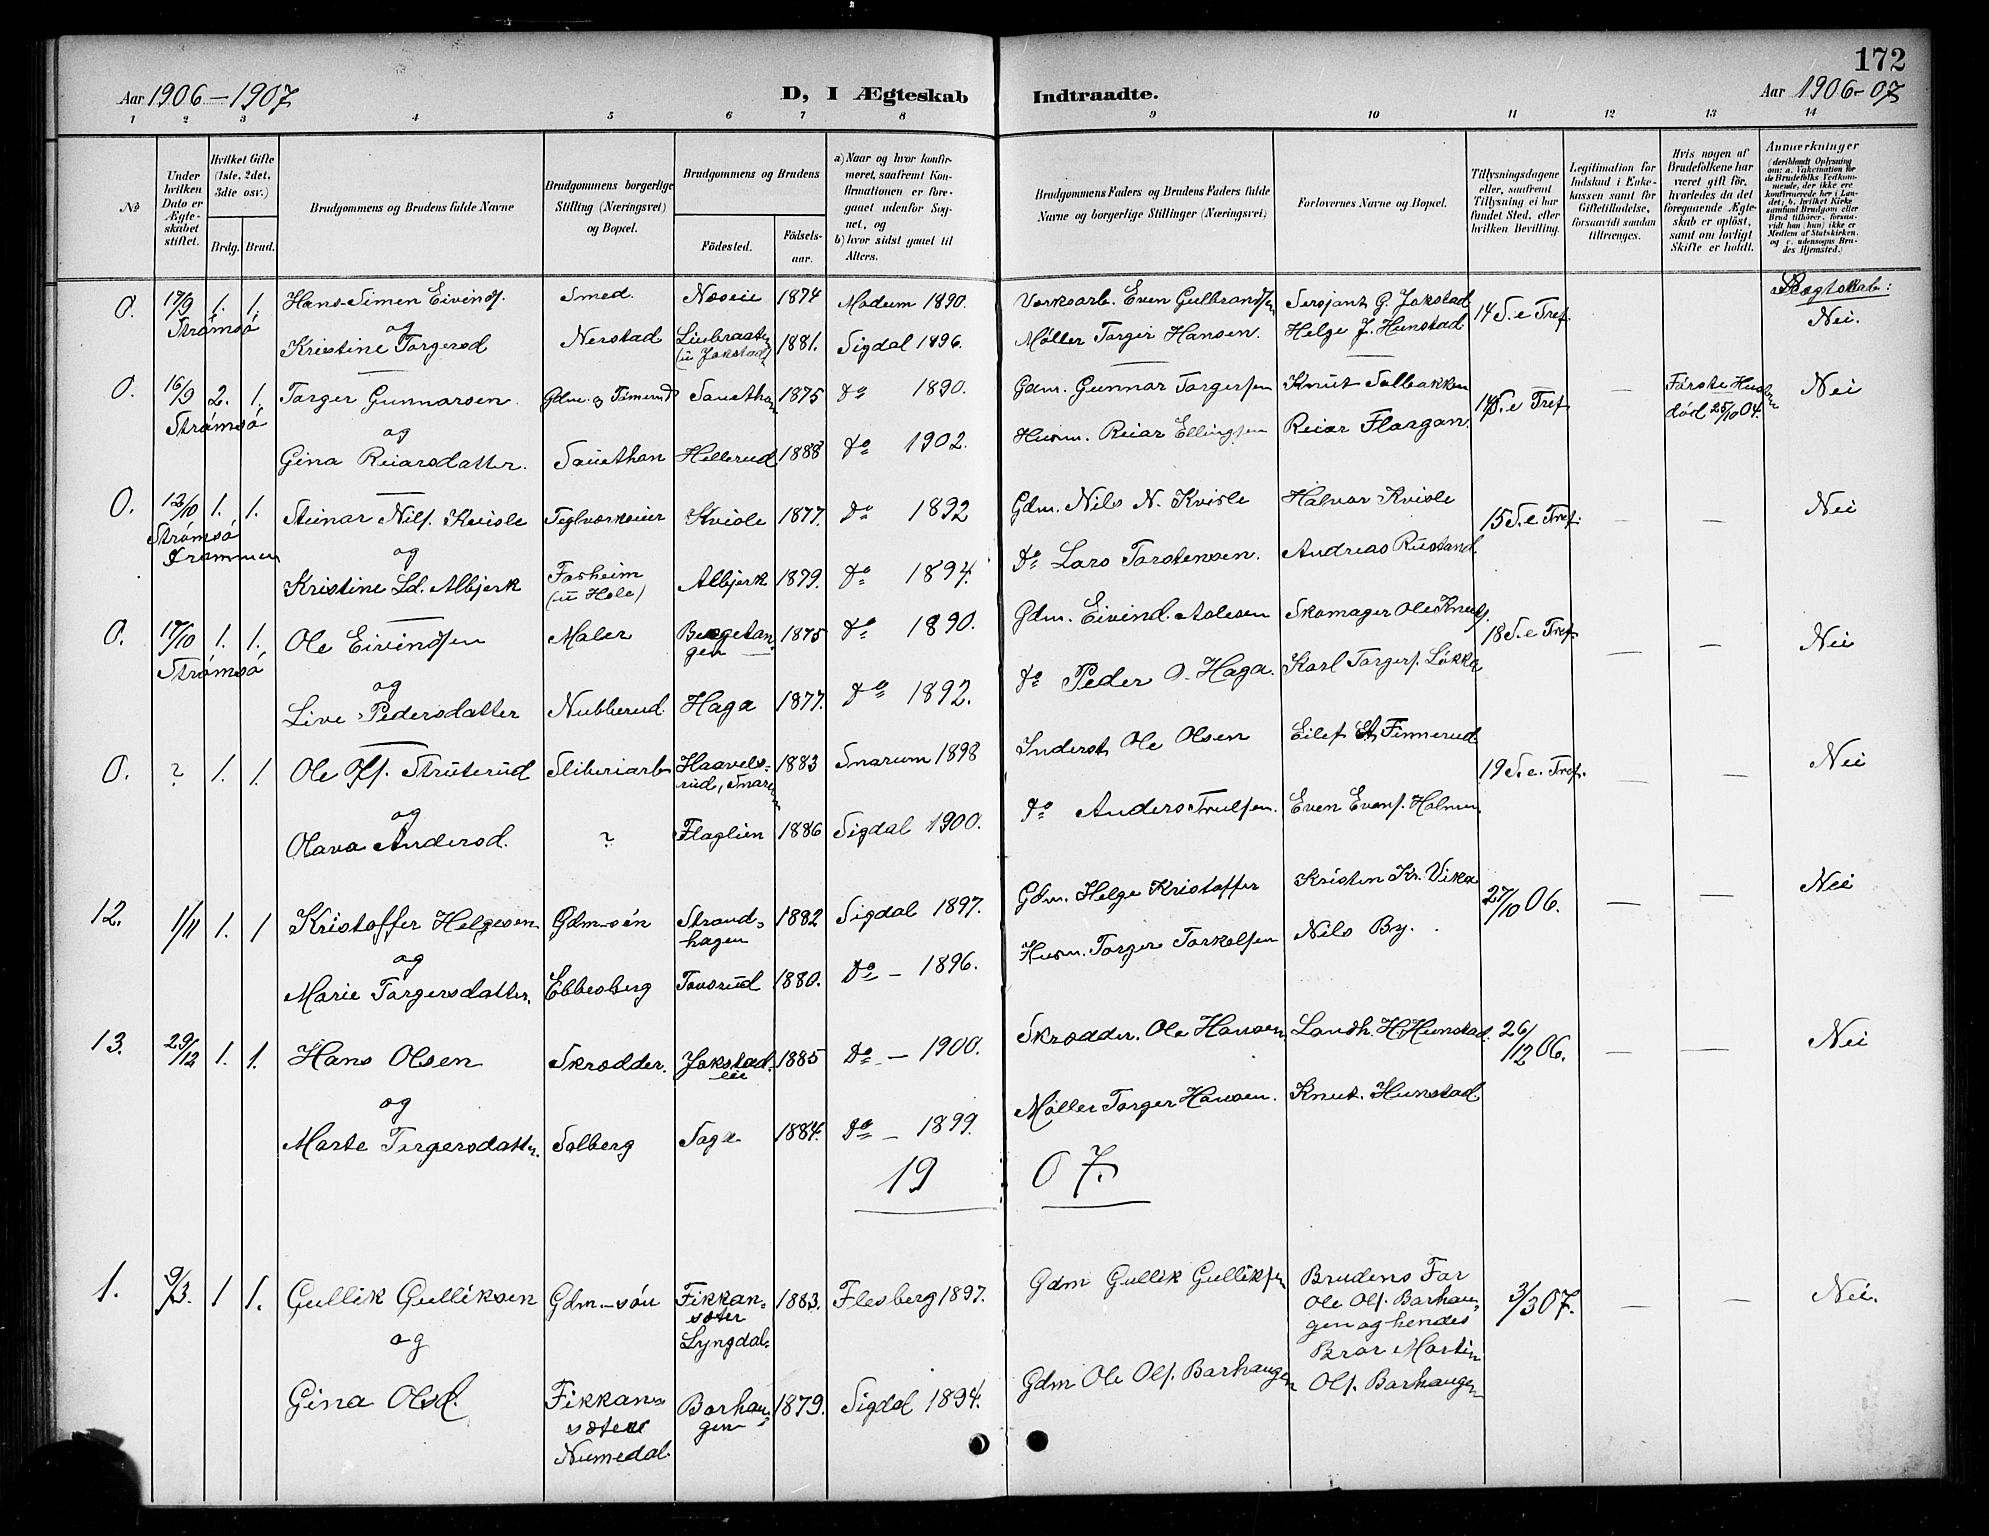 172
Aar 1906-1907 D, I Ægteskab Indtraadte. Aar 1906-07
1 2 3 4 5 6 7 8 9 10 11 12 13 14
No
Under hvilken Dato er Ægteskabet stiftet.
Hvilket Gifte (1ste, 2det, 3die osv.)
Brdg. Brud.
Brudgommens og Brudens fulde Navne
Brudgommens borgerlige Stilling (Næringsvei) og Bopæl.
Brudgommens og Brudens
Fødested. Fødsels-aar.
a) Naar og hvor konfirmeret, saafremt Konfirmationen er foregaaet udenfor Sognet, og
b) hvor sidst gaaet til Alters.
Brudgommens Faders og Brudens Faders fulde Navne og borgerlige Stillinger (Næringsvei)
Forlovernes Navne og Bopæl.
Tillysningsdagene eller, saafremt Tillysning ei har fundet Sted, efter hvilken Bevilling.
Legitimation for Indskud i Enkekassen samt for Giftetilladelse, forsaavidt saadan tiltrænges.
Hvis nogen af Brudefolkene har været gift før, hvorledes da det foregaaende Ægteskab er opløst, samt om lovligt Skifte er holdt.
Anmerkninger
(deriblandt Oplysning om: a. Vakcination for de Brudefolks Vedkommende, der ikke ere konfirmerede her i Landet; b. hvilket Kirkesamfund Brudgom eller Brud tilhører, forsaavidt han (hun) ikke er Medlem af Statskirken, og c. udensogns Brudes Hjemsted.)
Slægtskab:
O. 17/9 1. 1. Hans Simen Eivindſ. Smed. Næseie 1874 Modum 1890. Værksarb. Even Gulbrandſen Sersjant G. Jokstad 14 S. e Tref. Nei.
Strømsø og
Kristine Torgersd Nerstad Liebraaten (u Jokstad) 1881. Sigdal 1896. Møller Torger Hansen. Helge J. Hunstad
O. 16/9 2. 1. Torger Gunnarsen Gdm. Sauethon 1875 Do 1890. Gdm. Gunnar Torgerſen Knut Solbakken 14 S. e Tref. — Første Hustru død 25/10 04. Nei
Strømsø og
Gina Reiarsdatter. Sauethon Hellerud 1888 Do 1902. Husm. Reiar Ellingſen Reiar Flaagan.
O. 12/10 1. 1. Steinar Nilſ. Kvisle Teglværkseier Kvisle 1877. Do 1892 Gdm. Nils N. Kvisle Halvor Kvisle 15 S. e Tref. — — Nei
Strømsø Drammen og
Kristine Ld. Albjerk Fosheim (u Hole) Albjerk 1879. Do 1894. Do Lars Torstensen. Andreas Rustand.
O. 17/10 1. 1. Ole Eivindſen Maler Borgetangen 1875 Do 1890. Gdm. Eivind Aslesen Skomager Ole Knutſ. 18 S. e Tref. — — Nei
Strømsø og
Live Pedersdatter Nubberud. Haga 1877. Do 1892. Do Peder O. Haga. Karl Torgerſ. Løkka
O. ? 1. 1. Ole Olſ. Struterud Sliberiarb Haavelsrud, Snarum 1883 Snarum 1898 Inderst Ole Olsen Eilef Finnerud 19 S. e. Tref. — — Nei
og
Olava Andersd. ? Flaglien 1886 Sigdal 1900. Do Anders Trulſen. Even Evenſ. Holmen
12. 1/11 1. 1 Kristoffer Helgesen Gdm-søn Strandhagen 1882 Sigdal 1897. Gdm. Helge Kristoffer Kristen Kr. Vika 27/10 06. — — Nei
og
Marie Torgersdatter. Ebbesberg Tovsrud 1880. Do — 1896. Husm. Torger Torkelſen Nils By.
13. 29/12 1. 1. Hans Olsen Skrædder. Jokstadeie 1885 Do — 1900. Skrædder. Ole Hansen Landh. H. Hunstad. 26/12 06. — — Nei
og
Marte Torgersdatter. Solberg Saga 1884. Do — 1899. Møller Torger Hansen. Knut. Hunstad
1907.
1. 9/3. 1 1. Gullik Gulliksen Gdm-søn Fikkansæter Lyngdal. 1883. Flesberg 1897. Gdm Gullik Gullikſen Brudens Far Ole Olſ. Borhaugen og hendes Bror Martin Olſ. Borhaugen 3/3 07. — — Nei.
og
Gina Olsd. Fikkansæter Numedal. Borhaugen 1879. Sigdal 1894. Gdm Ole Olſ. Borhaugen